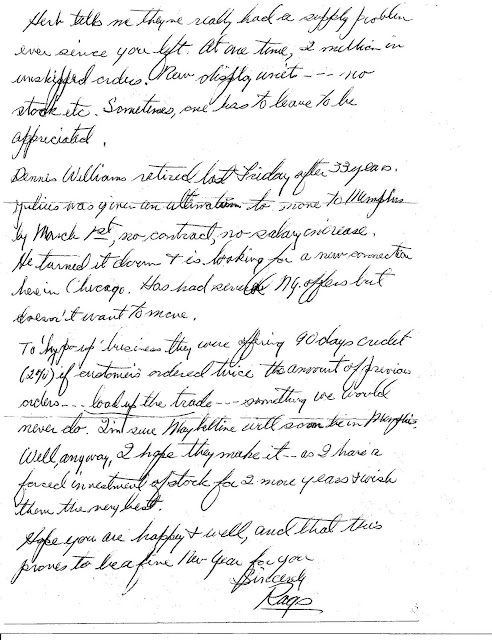 Herb tells me they've really had a supply problem
ever since you left. At one time, 2 million in
unshipped orders. New display unit --- no
stock etc. Sometimes, one has to leave to be
appreciated.
Dennis Williams retired last Friday after 33 years.
Julius was given an ultimatum to move to Memphis
by March 1st, no contract, no salary increase.
He turned it down + is looking for a new connection
here in Chicago. Has had several NY. offers but
doesn't want to move.
To "hypo up" business they were offering 90 days credit
if customers ordered twice the amount of previous
orders --- load up the trade --- something we would
never do. I'm sure Maybelline will soon be in Memphis.
Well, anyway, I hope they make it -- as I have a
forced investment of stock for 2 more years + wish
them the very best.
Hope you are happy + well, and that this
proves to be a fine New Year for you
Sincerely
Rags